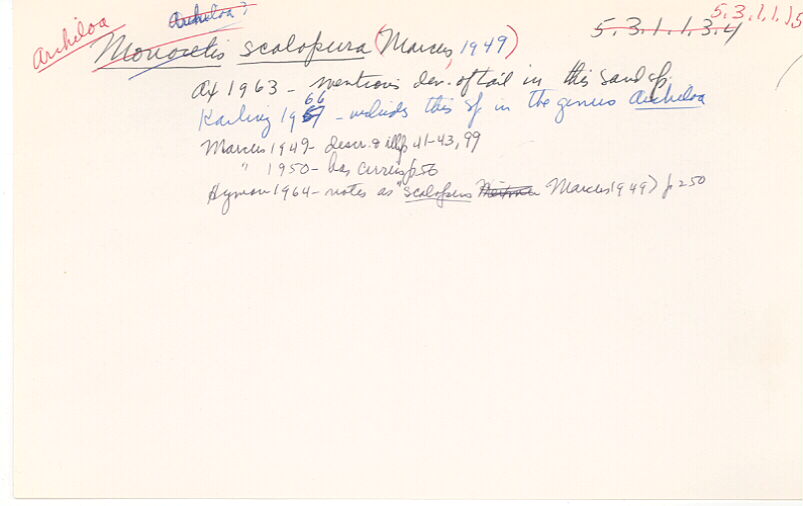 Archiloa
Archiloa?
5.3.1.1.15
Monocelis scolopura (Marcus, 1949)
5.3.1.1.3.4
Ax 1963 - mentions dev. of tail in this sand sp.
Karling 1966 - includes this sp in the genus Archiloa
Marcus 1949 - descr. & ill p 41-43, 99
" 1950 - has cirrus p 50
Hyman 1964 - notes as "scolopura Marcus 1949) p 250